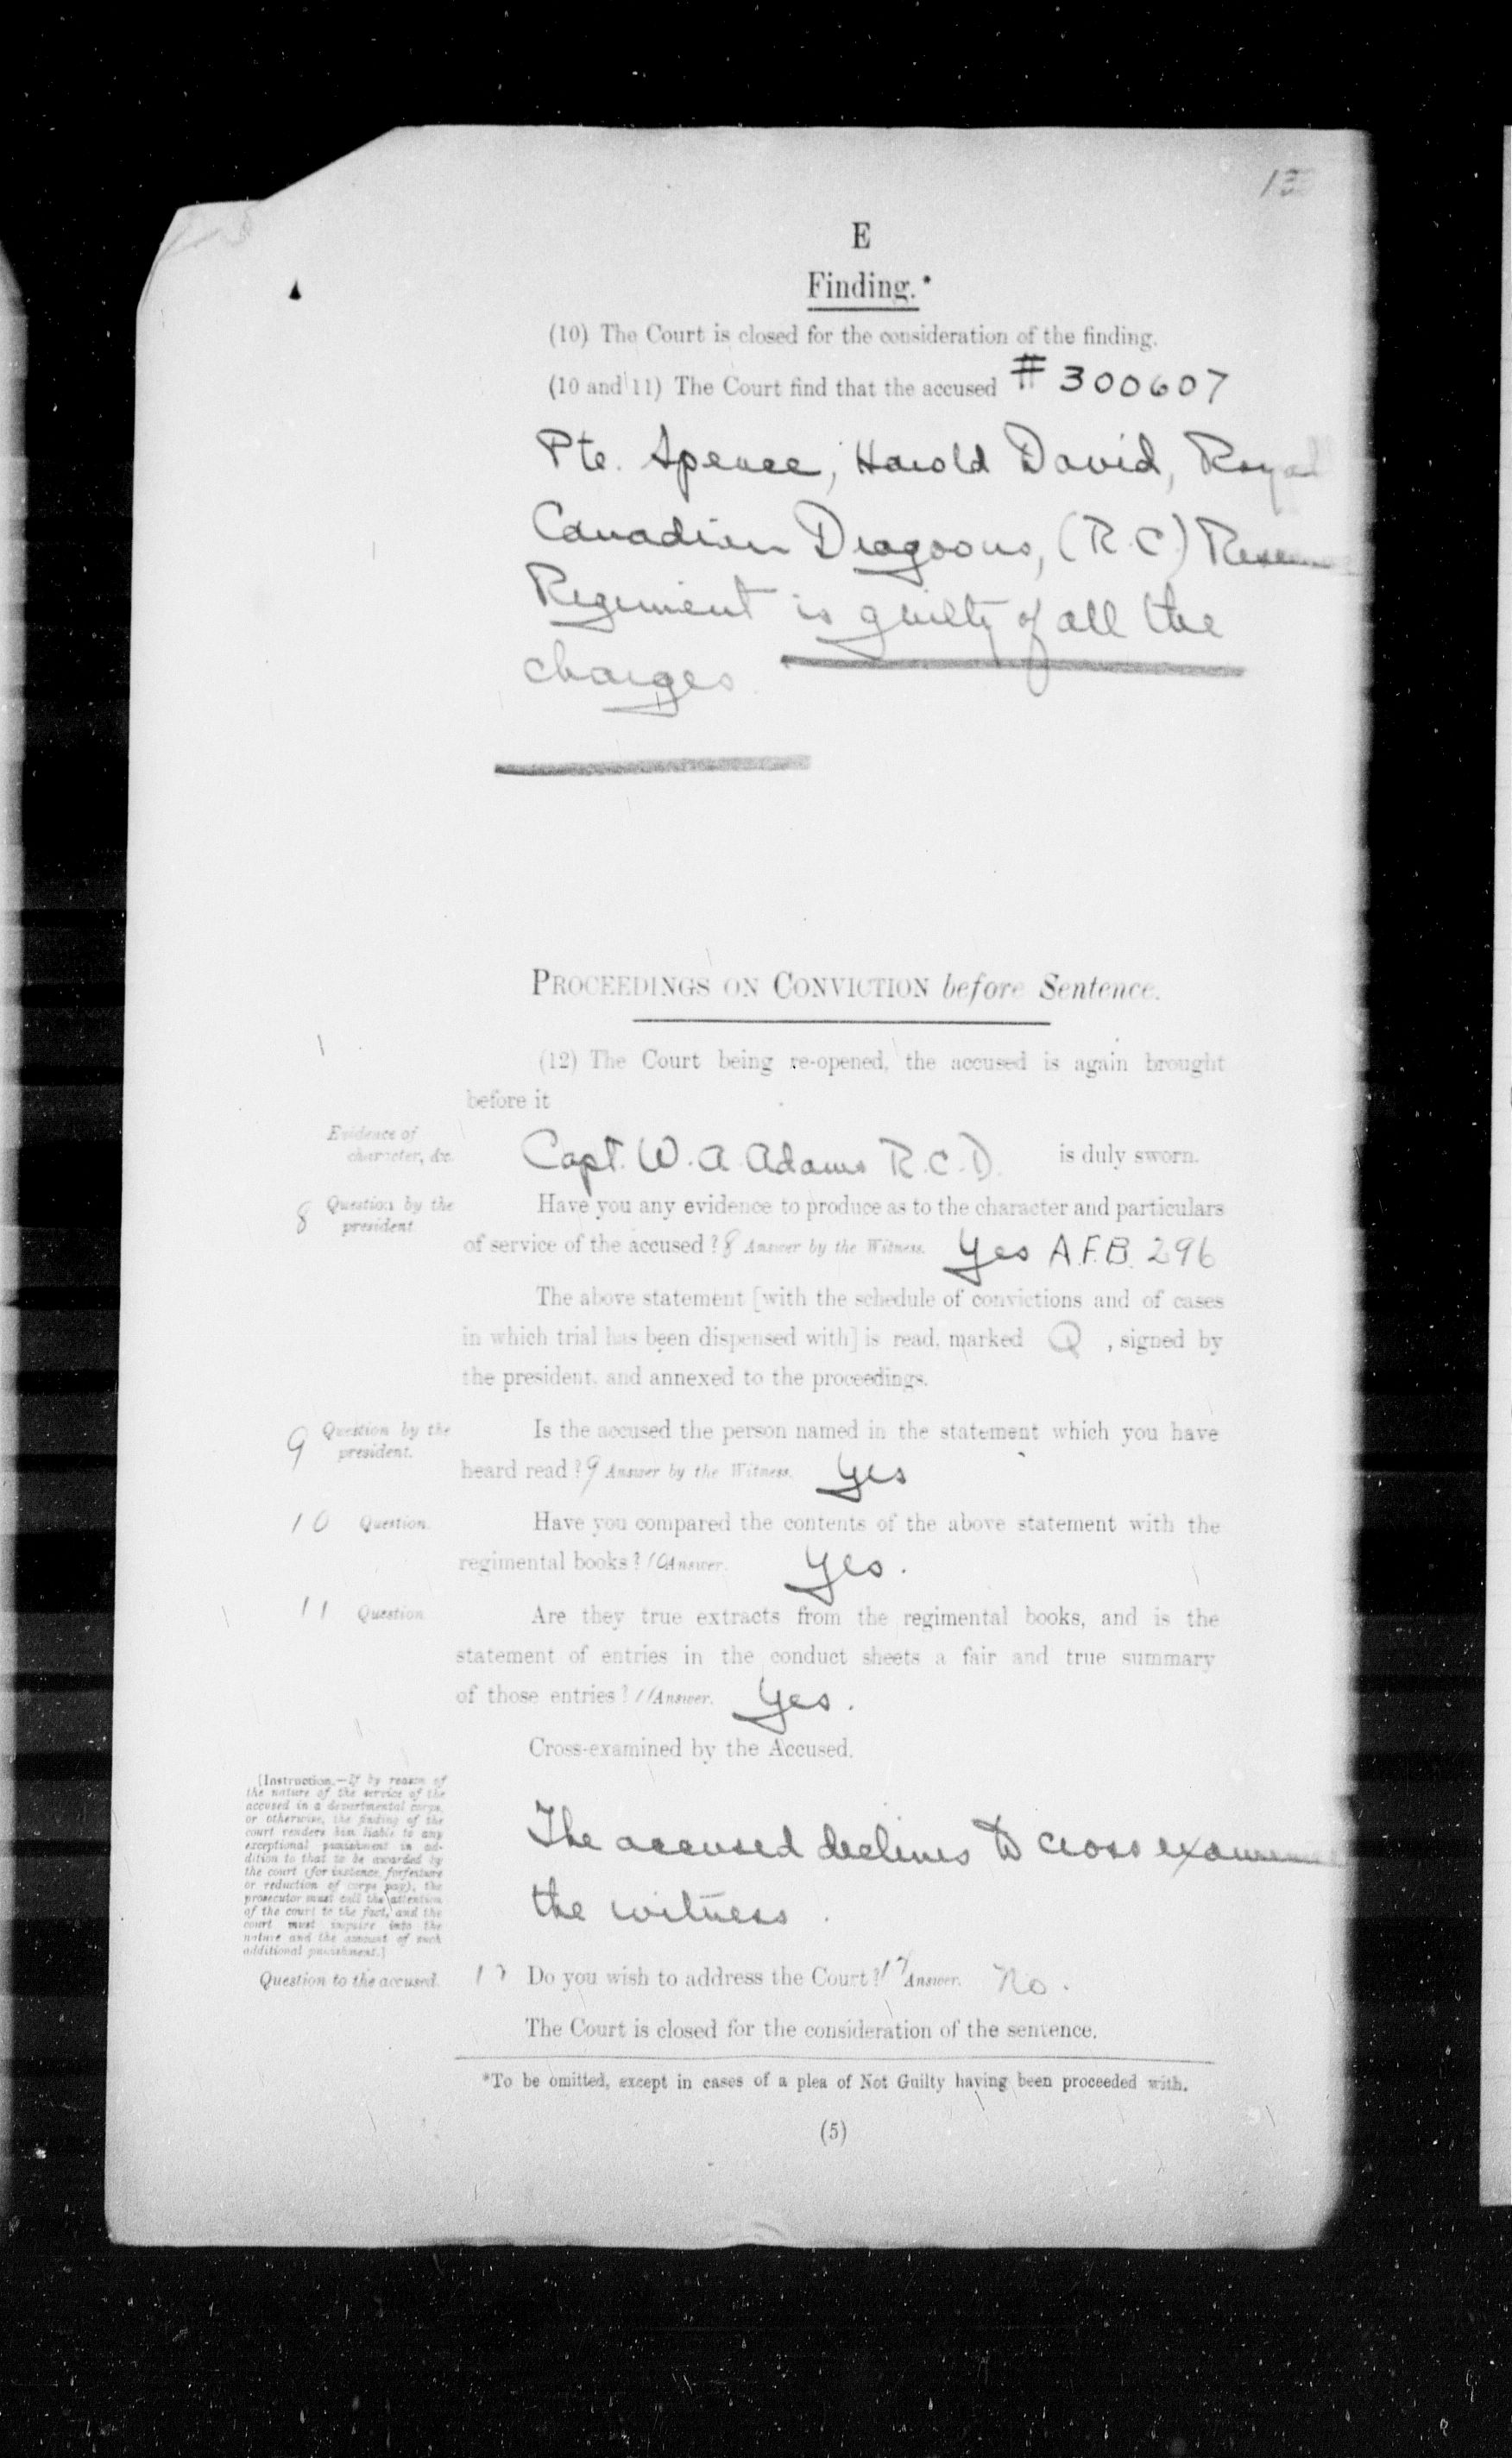 E
Finding.*
(10) The Court is closed for the consideration of the finding.
(10 and 11) The Court find that the accused # 300607
Pte. Spence, Harold David, Royal
Canadian Dragoons, (R.C.) Reserve
Regiment is guilty of all the
charges.
PROCEEDINGS ON CONVICTION before Sentence.
(12) The Court being re-opened, the accused is again brought
before it
Evidence of
character, &c.
Capt. W. A. Adams R.C.D. is duly sworn.
8 Question by the
president.
Have you any evidence to produce as to the character and particulars
of service of the accused ? 8 Answer by the Witness. Yes A.F.B. 296
The above statement [with the schedule of convictions and of cases
in which trial has been dispensed with] is read, marked Q , signed by
the president, and annexed to the proceedings.
9 Question by the
president.
Is the accused the person named in the statement which you have
heard read ? 9 Answer by the Witness. Yes
10 Question.
Have you compared the contents of the above statement with the
regimental books ? 10 Answer. Yes.
11 Question
Are they true extracts from the regimental books, and is the
statement of entries in the conduct sheets a fair and true summary
of those entries ? 11 Answer. Yes.
Cross-examined by the Accused.
[Instruction.—If by reason of
the nature of the service of the
accused in a departmental corps,
or otherwise, the finding of the
court renders him liable to any
exceptional punishment in ad-
dition to that to be awarded by
the court (for instance, forfeiture
or reduction of corps pay), the
prosecutor must call the attention
of the court to the fact, and the
court must inquire into the
nature and the amount of such
additional punishment.]
The accused declines to cross examine
the witness.
Question to the accused. 12 Do you wish to address the Court ? 12 Answer. No.
The Court is closed for the consideration of the sentence.
*To be omitted, except in cases of a plea of Not Guilty having been proceeded with.
(5)